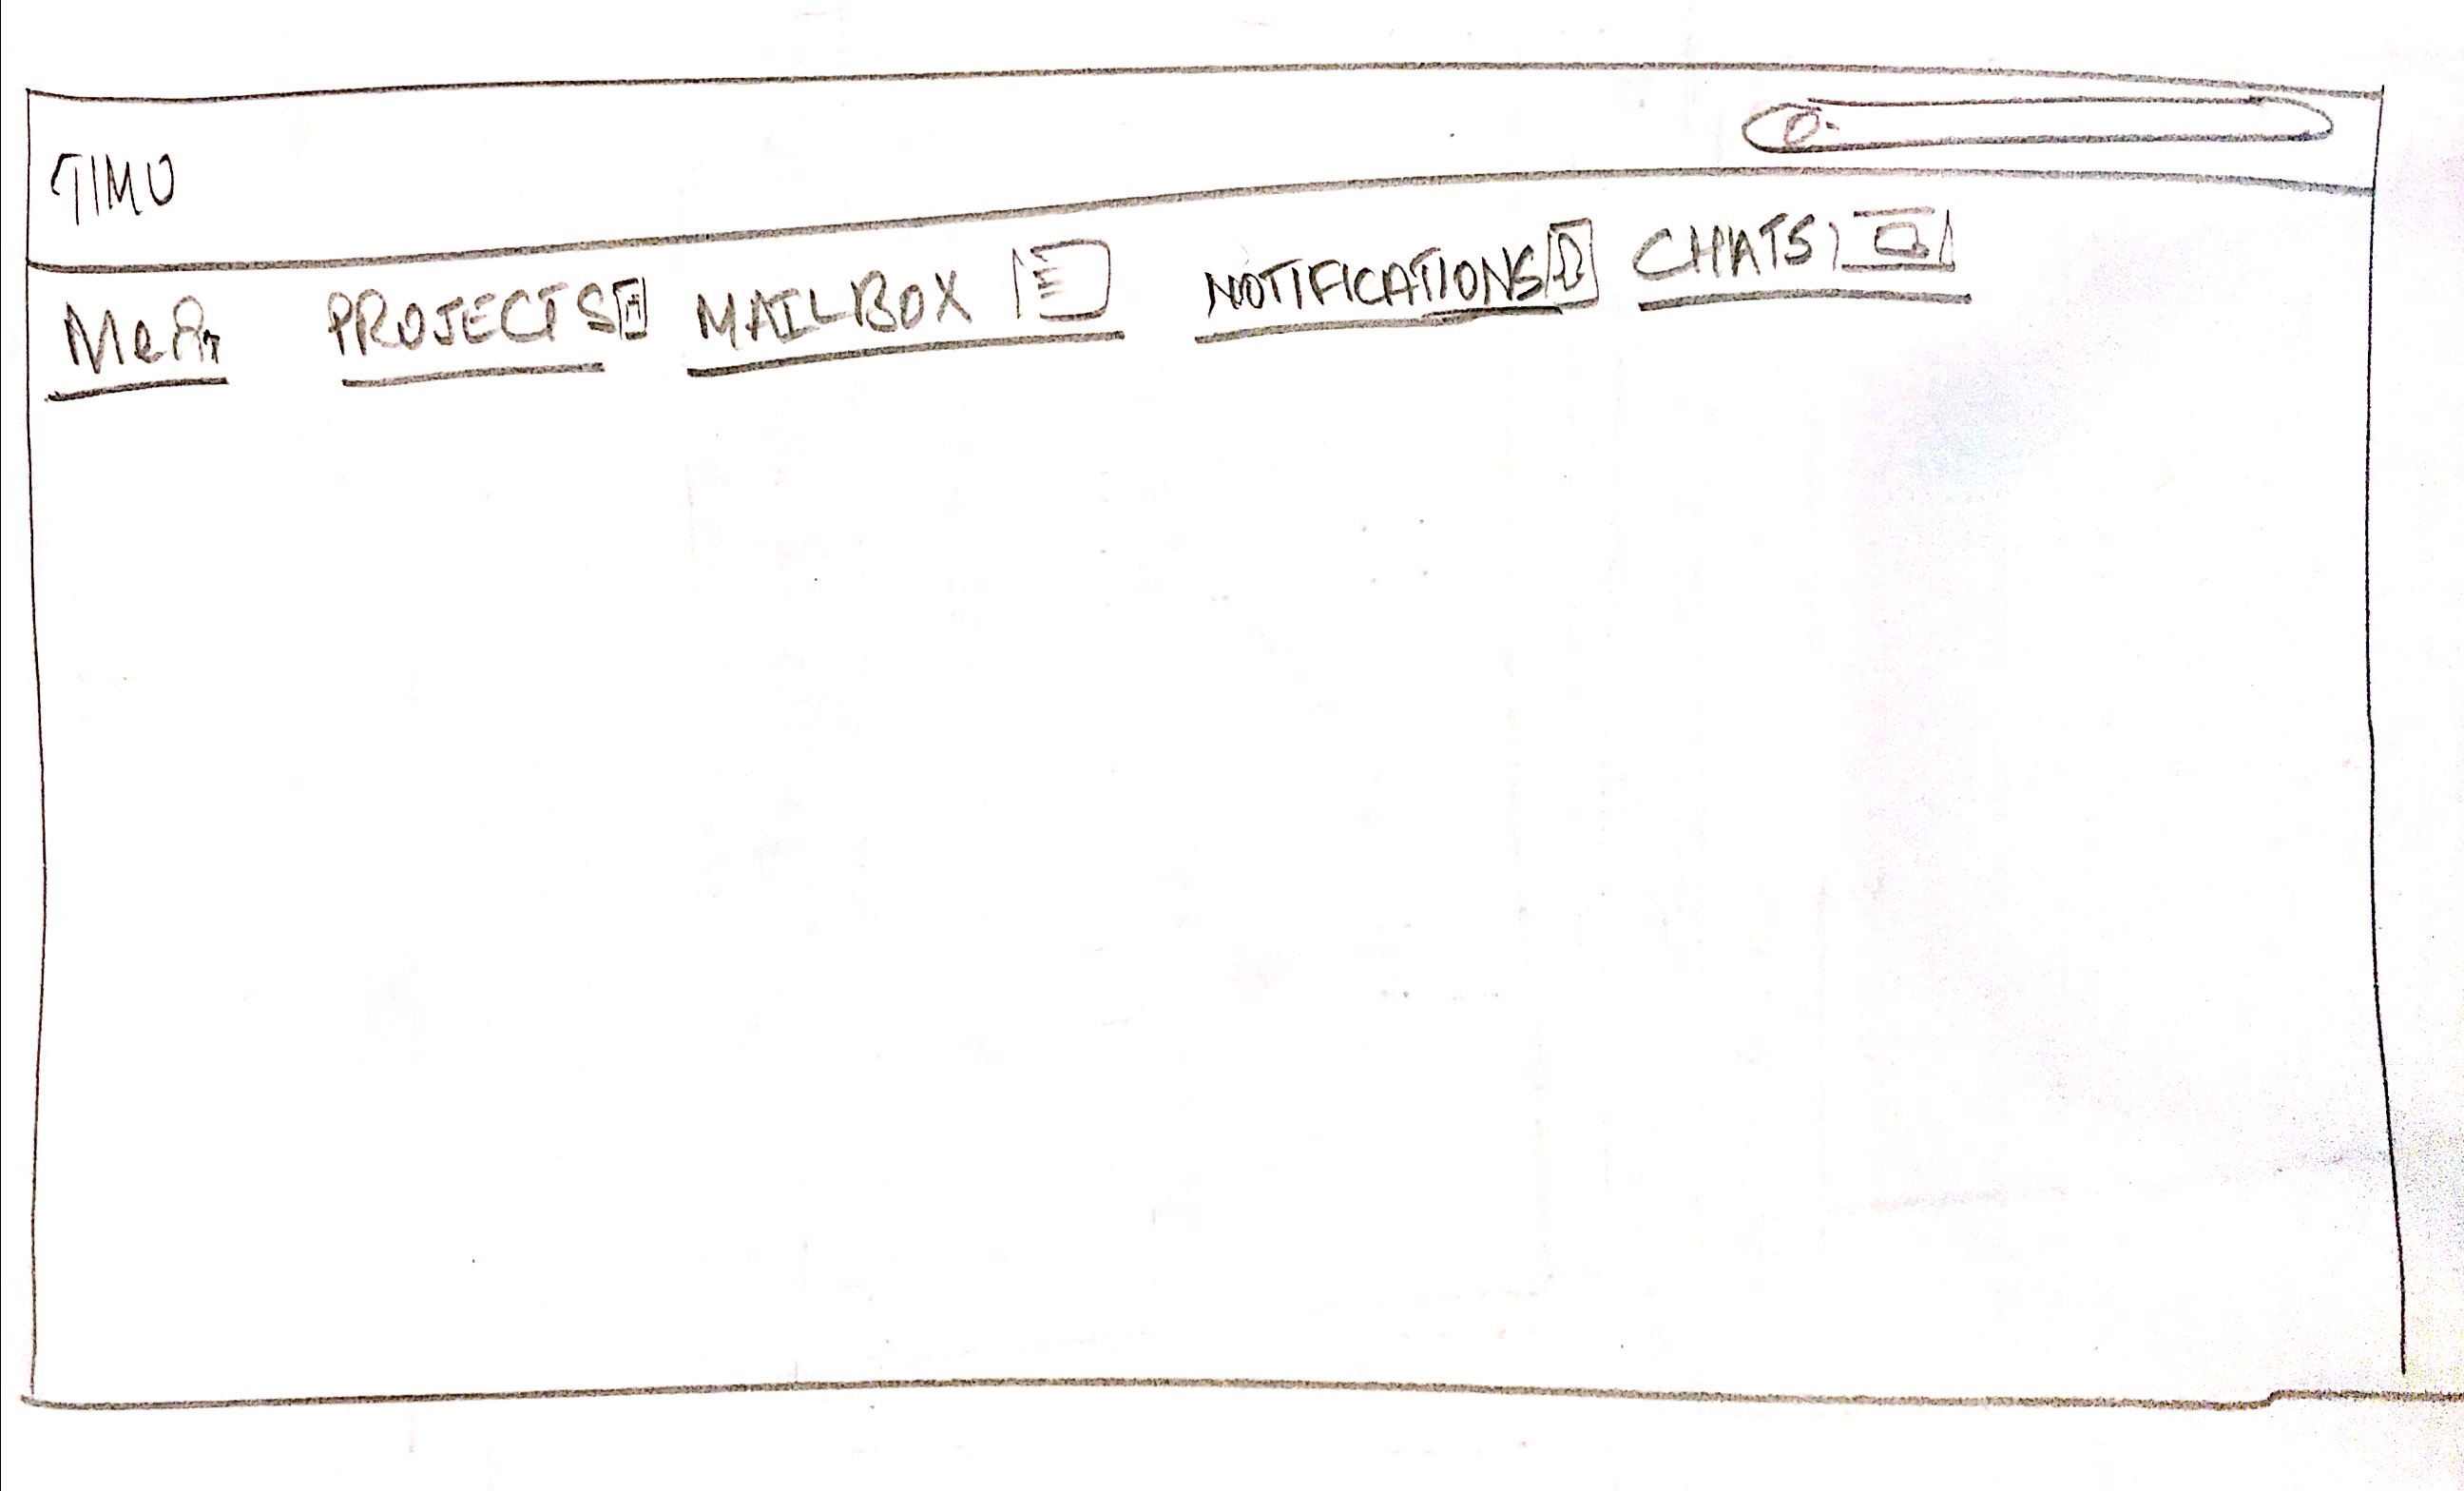 TIMU
Me PROJECTS MAILBOX NOTIFICATIONS CHATS